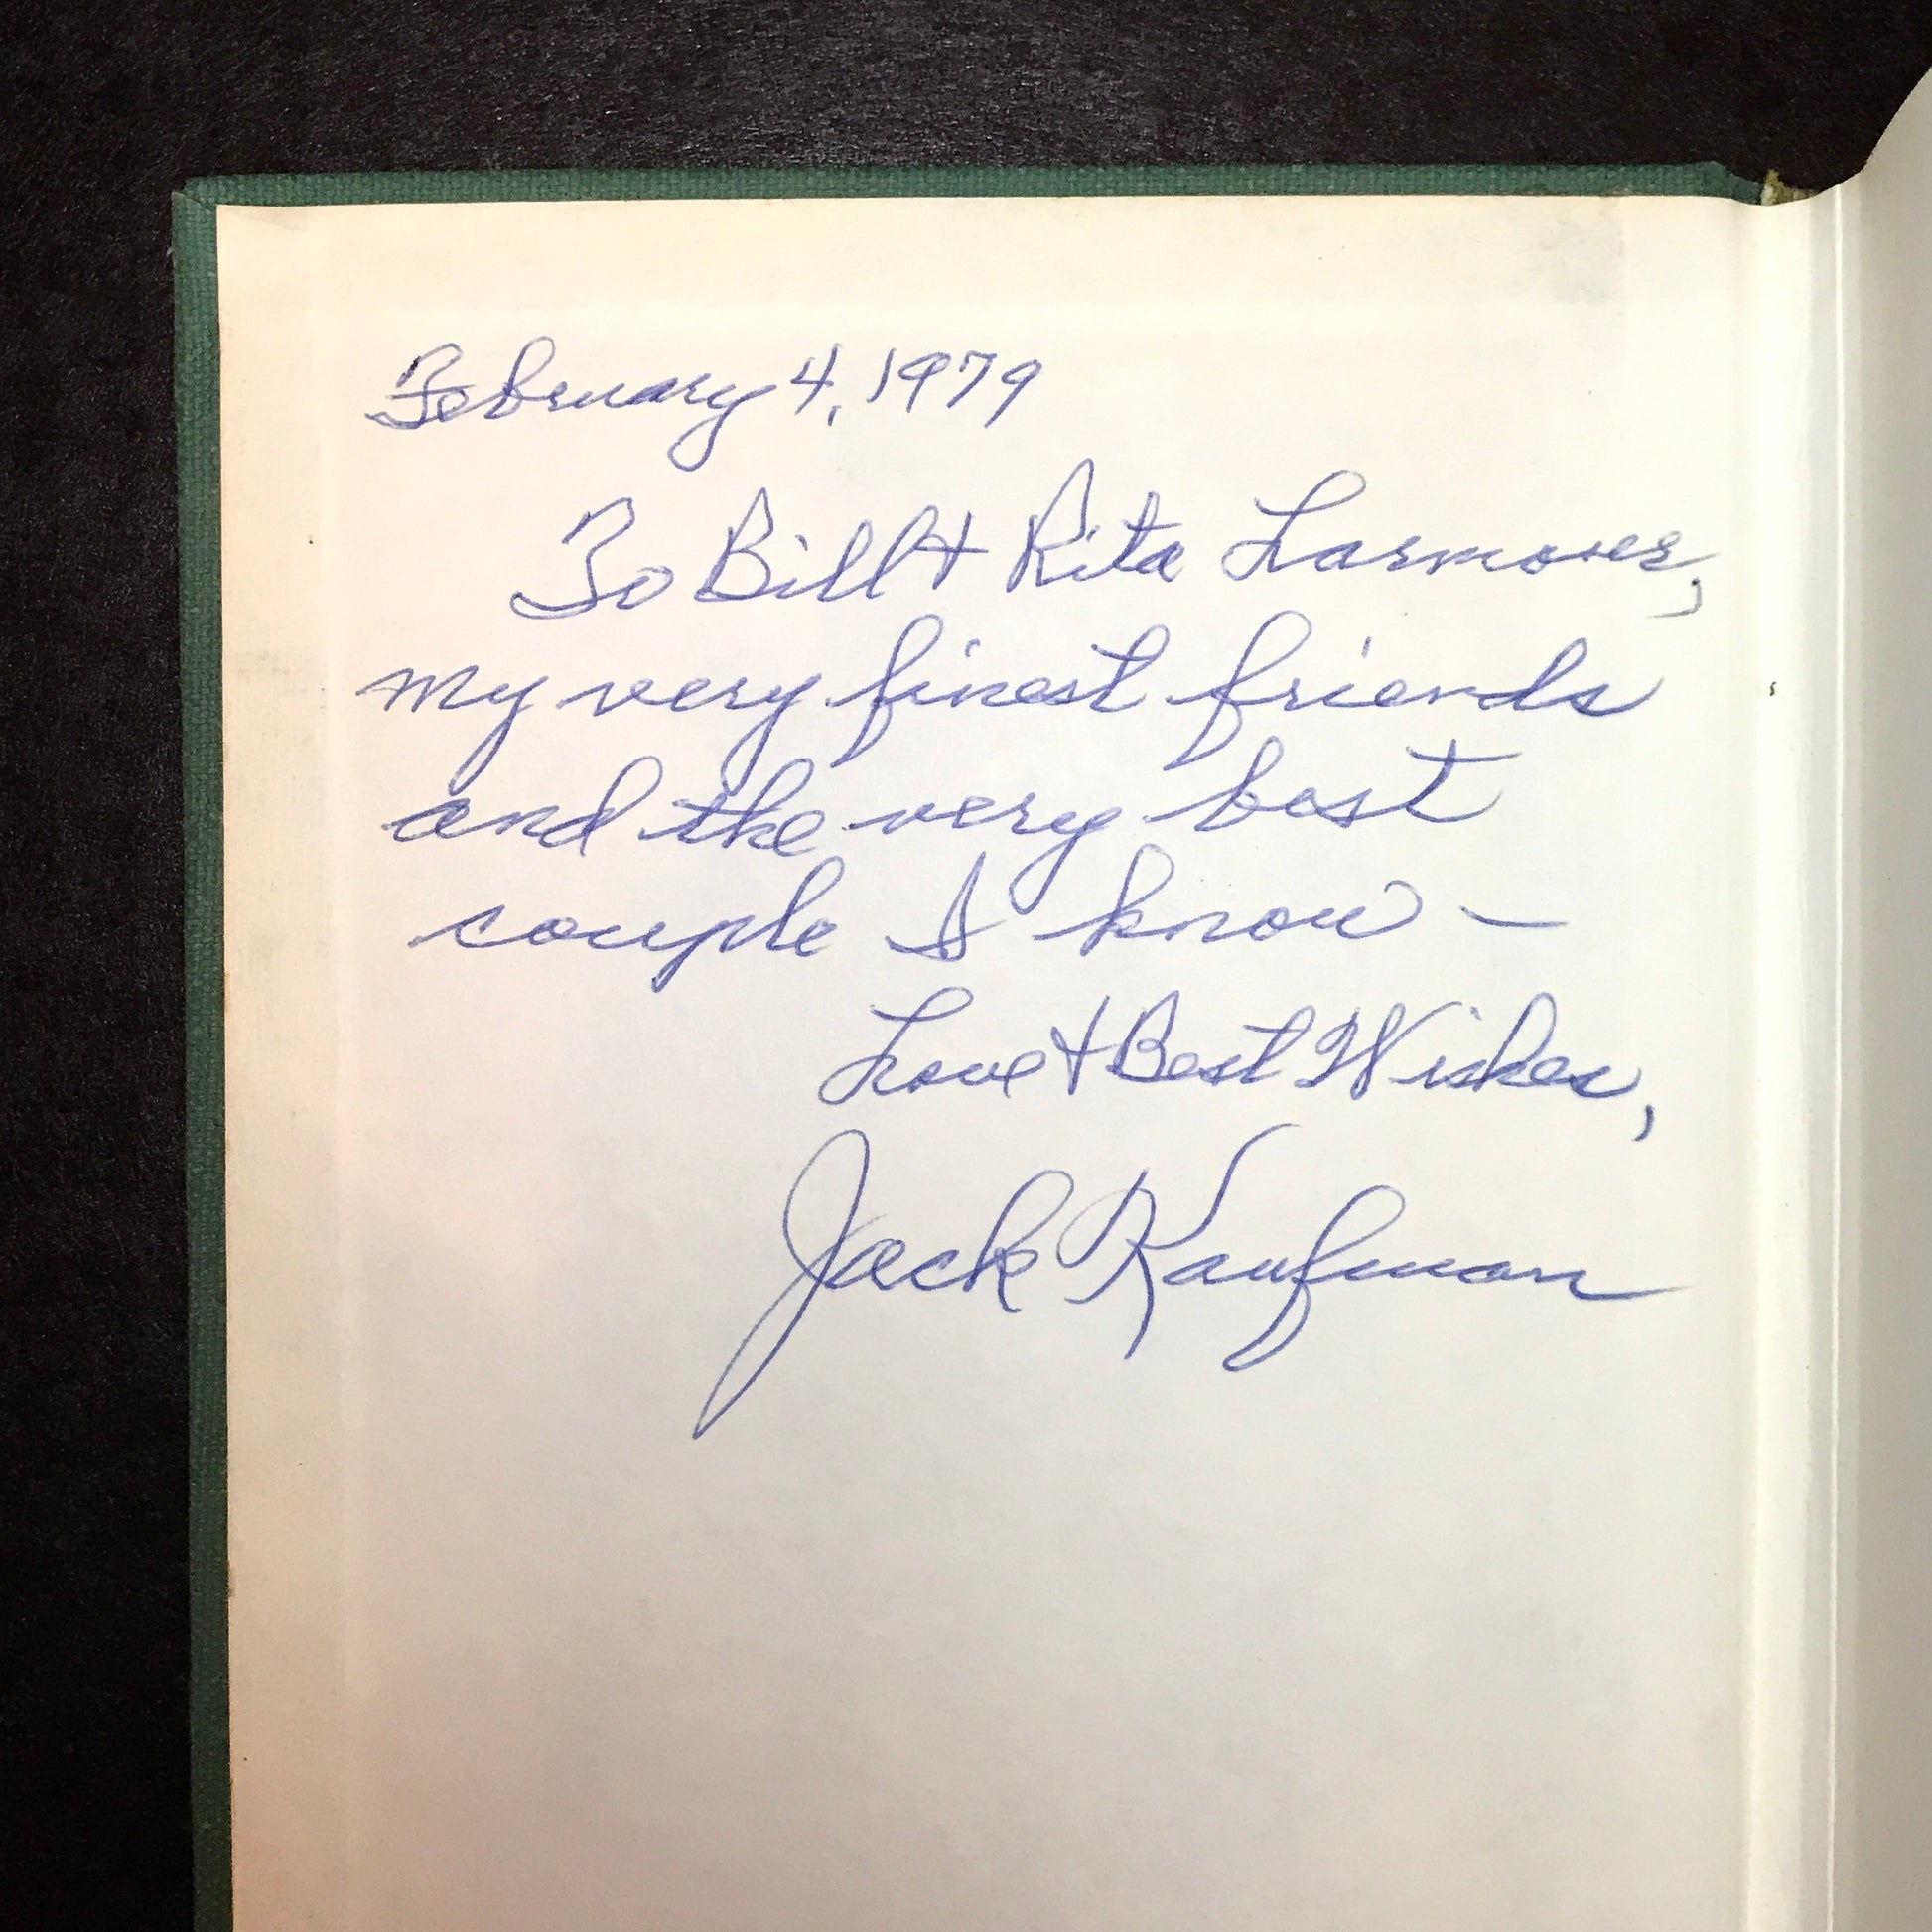 February 4, 1979
To Bill & Rita
my very finest friends
and the very best
couple I know —
Love & Best Wishes,
Jack Kaufman